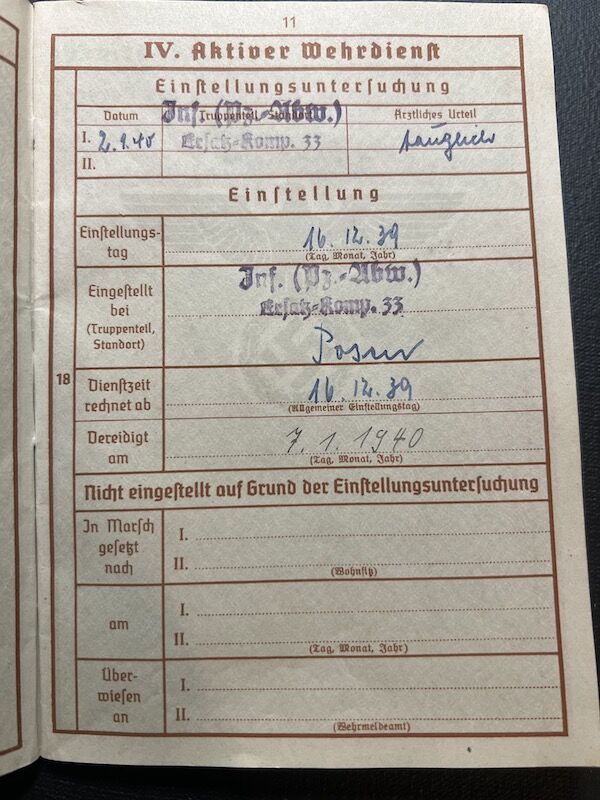 11
IV. Aktiver Wehrdienst
Einstellungsuntersuchung
Datum
Truppenteil, Standort
Ärztliches Urteil
I. 2.1.40
Inf. (Pz.-Abw.)
Ersatz-Komp. 33
tauglich
II.
Einstellung
Einstellungs-
tag
16.12.39
(Tag, Monat, Jahr)
Eingestellt
bei
(Truppenteil,
Standort)
Inf. (Pz.-Abw.)
Ersatz-Komp. 33
Posen
18
Dienstzeit
rechnet ab
16.12.39
(Allgemeiner Einstellungstag)
Vereidigt
am
7.1.1940
(Tag, Monat, Jahr)
Nicht eingestellt auf Grund der Einstellungsuntersuchung
In Marsch
gesetzt
nach
I.
II.
(Wohnsitz)
am
I.
II.
(Tag, Monat, Jahr)
Über-
wiesen
an
I.
II.
(Wehrmeldeamt)